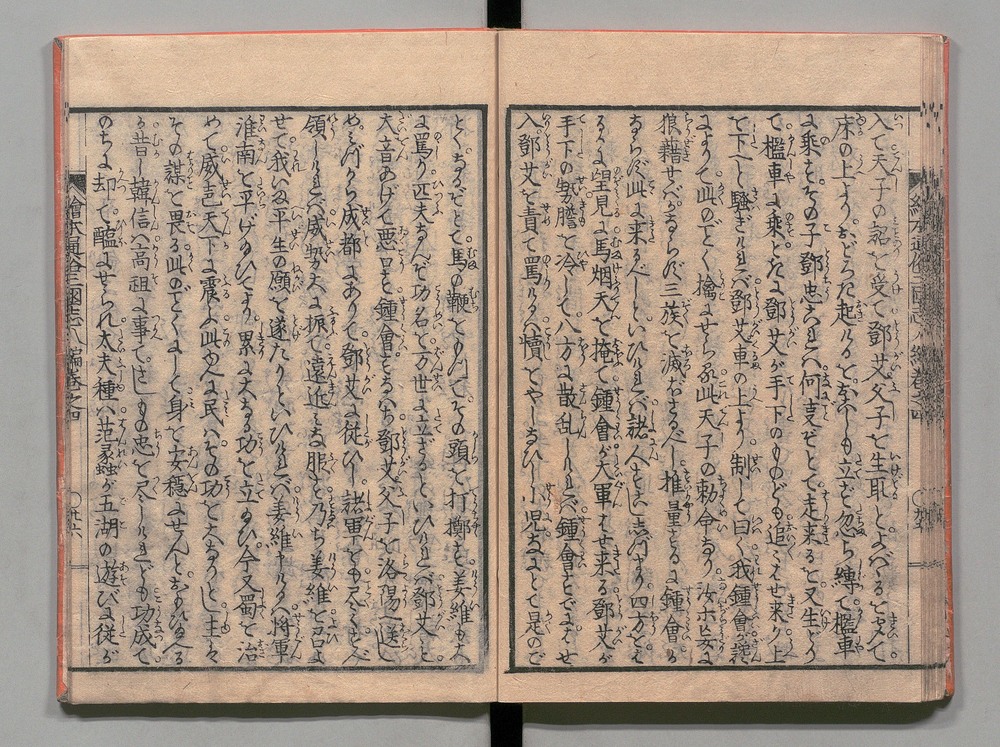 入て天子の詔を受て鄧艾父子を生取とよバゝるを聞て
床の上よりおどろき起けるを少しも立ず忽ち縛て檻車
に乗その子鄧忠これハ何支ぞとて走来るを又生どり
て檻車に乗たり鄧艾が手下のものども追々はせ来り上
を下へと騒ぎけれバ鄧艾車の上より制して曰く我鍾會が讒
によりて此のごとく擒にせらる此天子の勅命なり汝ホ妄に
狼藉せバかならず三族を滅さるべし推量するに鍾會も
かならず此に来るべしといひけれバ諸人しづまり四方を
みるに望見に馬烟天を掩て鍾會が大軍はせ来る鄧艾が
手下の勢膽を冷して八方に散乱しけれバ鍾會すでにはせ
入鄧艾を責て罵けるハ犢をやしなひし小児なにとて是のご
とくなるぞとて馬の鞭をもつてその頭を打擲す姜維も大
に罵り匹夫なんぞ功名を万世に立ざるといひけれバ鄧艾も
大音あげて悪口す鍾會すなハち鄧艾父子を洛陽へ送し
めみづから成都にありて鄧艾に従ひし諸軍をも尽くすべ
領しけれバ威勢大に振て遠近みな服す乃ち姜維を召よ
せて我いま平生の願を遂たりといひけれバ姜維申けるハ将軍
淮南を平げ給ひてより累に大なる功を立給ひ今又蜀を治
めて威名天下に震ふ此故に民ハその功を大なりとし主ハ
その謀を畏る此のごとくにして身を安穏にせんとおもひ給へる
る昔し韓信ハ高祖に事てしかも忠を尽しけれども功成て
のちに却て醢にせられ大夫種ハ范蠡が五湖の遊びに従が
繪本通俗三國志八編巻之四
繪本通俗三國志八編巻之四
〇廿六